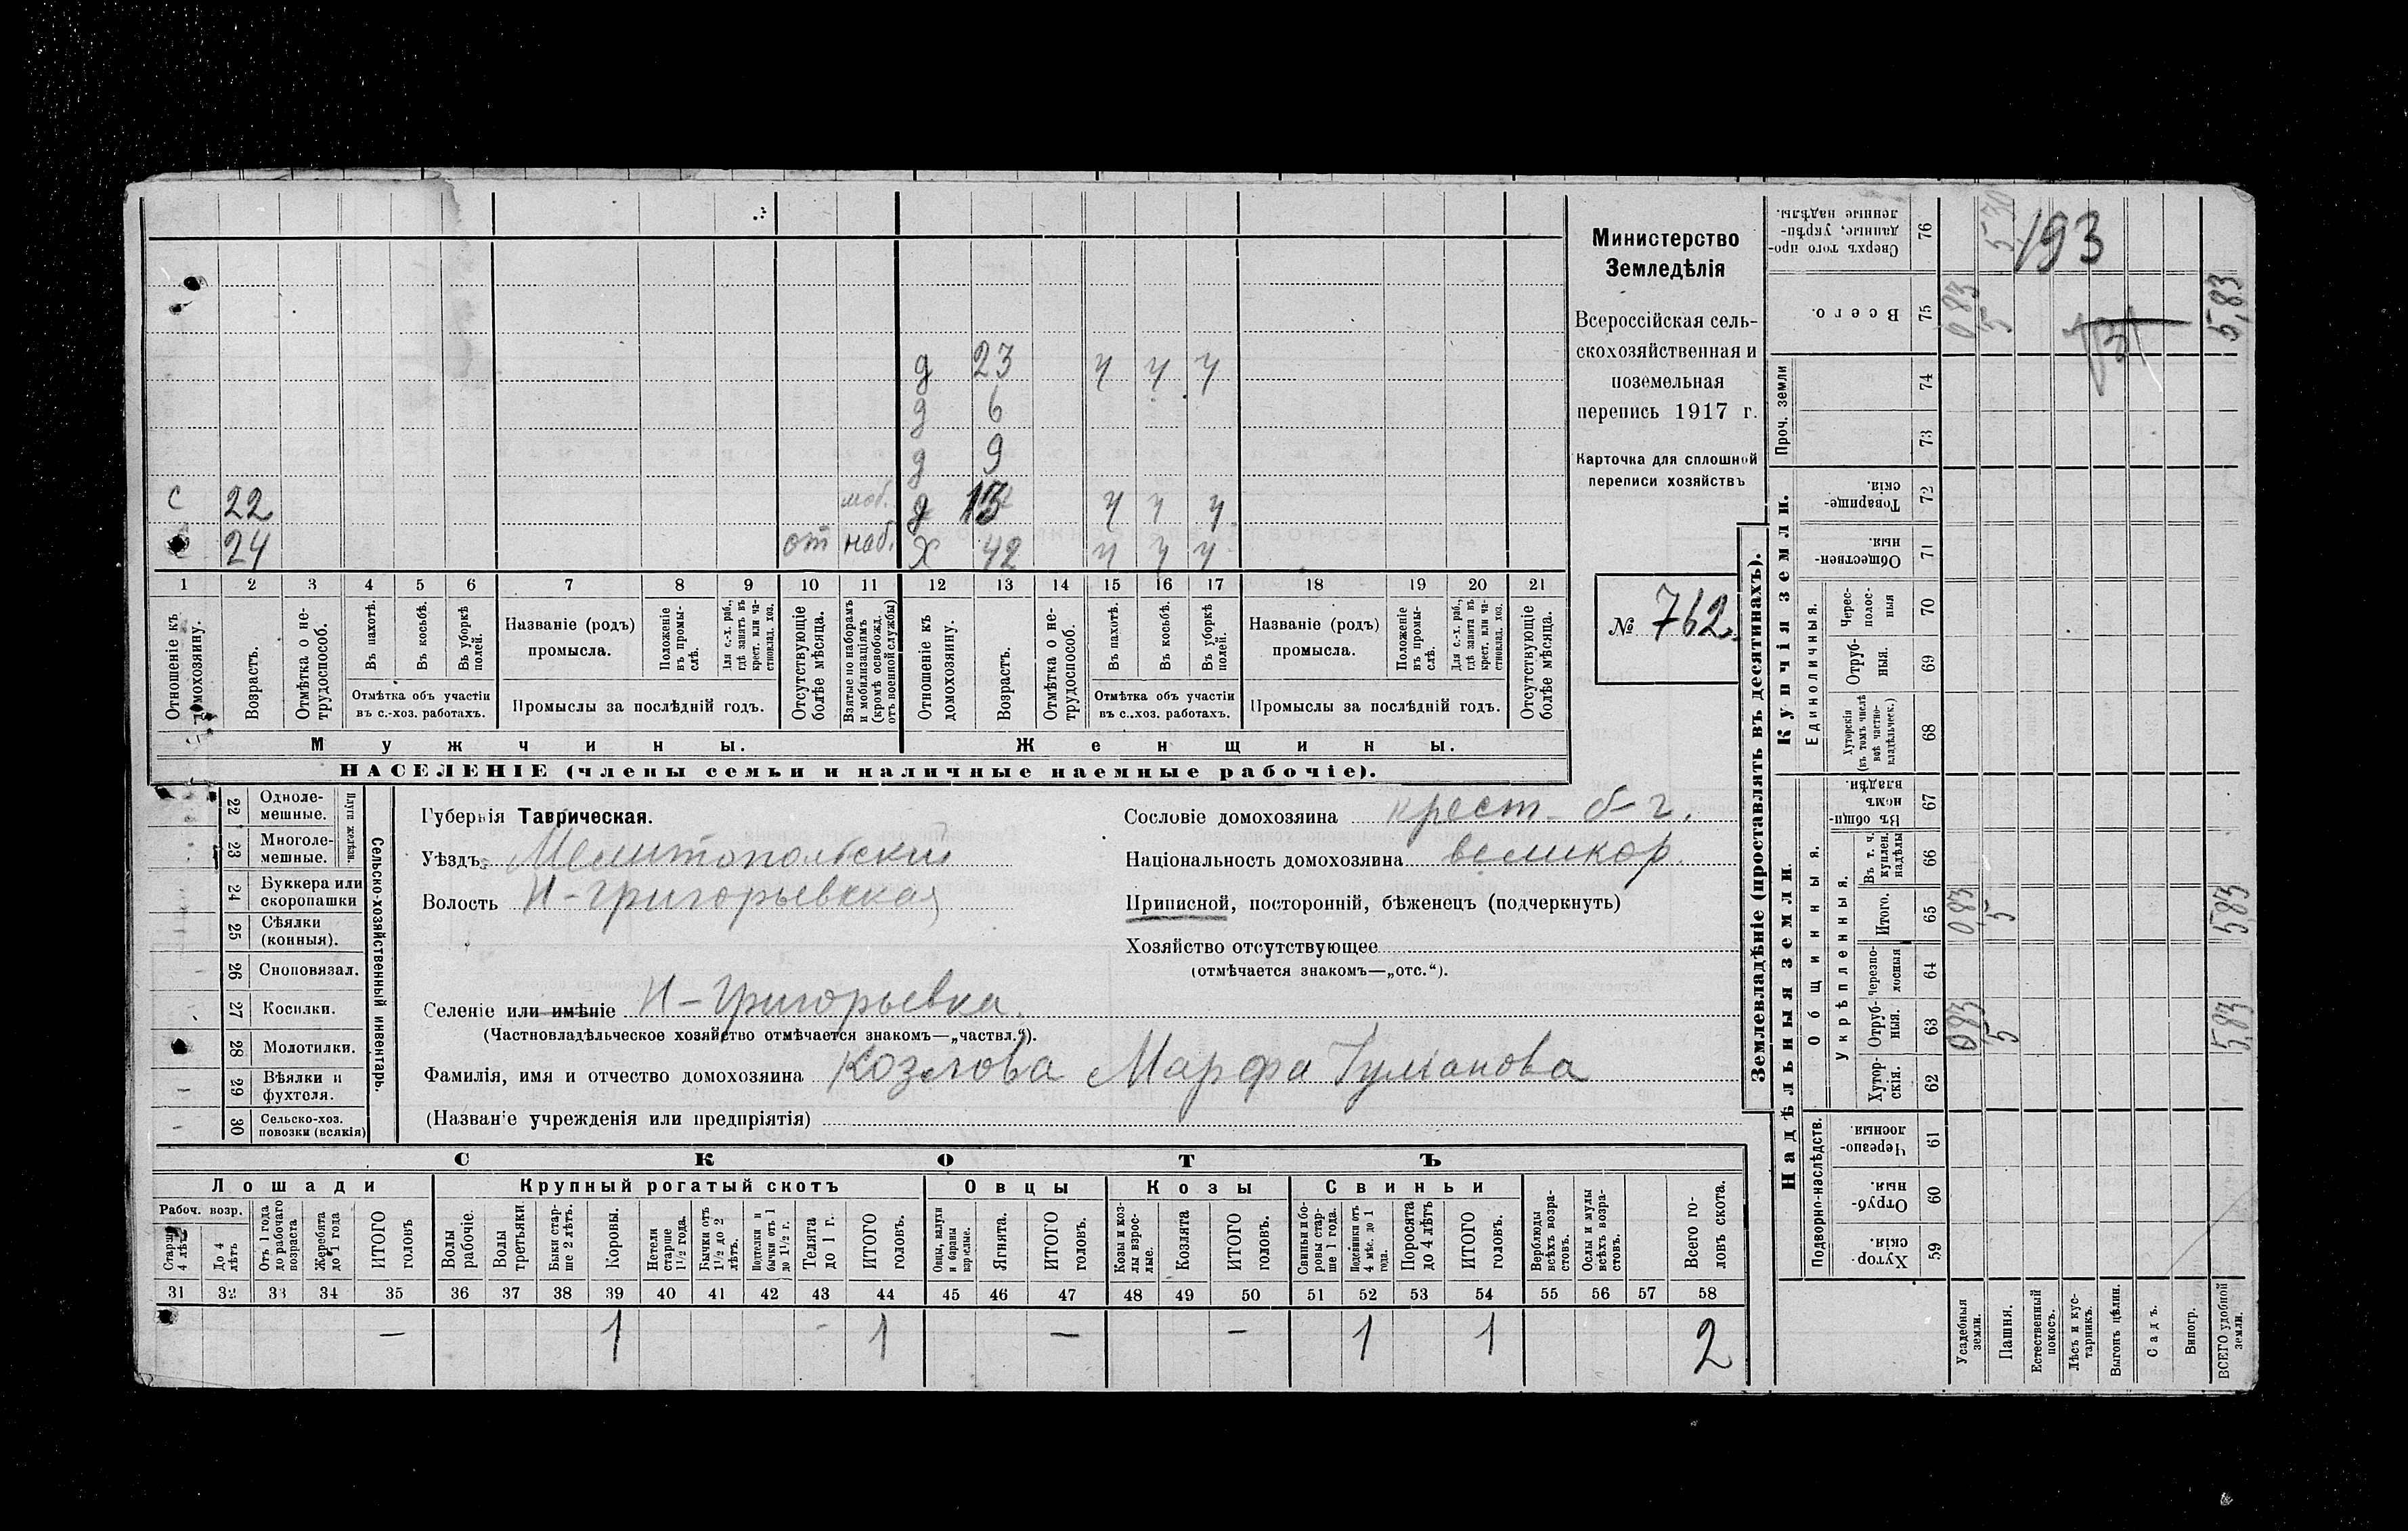 д 23 ч ч ч
д 6
д 9
с 22 моб. д 13 ч ч ч
24 от наб. Х 42 ч ч ч
1 2 3 4 5 6 7 8 9 10 11 12 13 14 15 16 17 18 19 20 21
Отношеніе къ домохозяину.
Возрастъ.
Отмѣтка о не-
трудоспособ.
Въ пахотѣ.
Въ косьбѣ.
Въ уборкѣ
полей.
Отмѣтка объ участіи
въ с.-хоз. работахъ.
Названіе (родъ)
промысла.
Положеніе
въ промы-
слѣ.
Для с.-х. раб.,
гдѣ занятъ въ
крест. или ча-
стновлад. хоз.
Промыслы за послѣдній годъ.
Отсутствующіе
болѣе мѣсяца.
Взятые по наборамъ
и мобилизаціямъ
(кромѣ освобожд.
отъ военной службы)
Отношеніе къ
домохозяину.
Возрастъ.
Отмѣтка о не-
трудоспособ.
Въ пахотѣ.
Въ косьбѣ.
Въ уборкѣ
полей.
Отмѣтка объ участіи
въ с..хоз. работахъ.
Названіе (родъ)
промысла.
Положеніе
въ промы-
слѣ.
Для с.-х. раб.,
гдѣ занята въ
крест. или ча-
стновлад. хоз.
Промыслы за послѣдній годъ.
Отсутствующіе
болѣе мѣсяца.
Мужчины. Женщины.
НАСЕЛЕНІЕ (члены семьи и наличные наемные рабочіе).
Министерство
Земледѣлія
Всероссійская сель-
скохозяйственная и
поземельная
перепись 1917 г.
Карточка для сплошной
переписи хозяйствъ
№ 762.
22 Одноле-
мешные.
23 Многоле-
мешные.
Плуги желѣзн.
24 Буккера или
скоропашки
25 Сѣялки
(конныя).
26 Сноповязал.
27 Косилки.
28 Молотилки.
29 Вѣялки и
фухтеля.
30 Сельско-хоз.
повозки (всякія)
Сельско-хозяйственный инвентарь.
Губернія Таврическая.
Уѣздъ Мелитопольский
Волость Н-Григорьевская
Селеніе или имѣніе Н-Григорьевка.
(Частновладѣльческое хозяйство отмѣчается знакомъ—„частвл.“).
Фамилія, имя и отчество домохозяина Козлова Марфа Гуманова
(Названіе учрежденія или предпріятія)
Сословіе домохозяина крест. б-г.
Національность домохозяина великор.
Приписной, посторонній, бѣженецъ (подчеркнуть)
Хозяйство отсутствующее
(отмѣчается знакомъ—„отс.“).
СКОТЪ
Лошади Крупный рогатый скотъ Овцы Козы Свиньи
Рабоч. возр.
Старше
4 лѣтъ
До 4
лѣтъ
Отъ 1 года
до рабочаго
возраста
Жеребята
до 1 года
ИТОГО
головъ
Волы
рабочіе.
Волы
третьяки
Быки стар-
ше 2 лѣтъ.
Коровы.
Нетели
старше
1½ года.
Бычки отъ
1½ до 2
лѣтъ.
Подтелки и
бычки отъ 1
до 1½ г.
Телята
до 1 г.
ИТОГО
головъ.
Овцы, валухи
и бараны
взрослые.
Ягнята.
ИТОГО
головъ.
Козы и коз-
лы взрос-
лые.
Козлята
ИТОГО
головъ.
Свиньи и бо-
ровы стар-
ше 1 года.
Подсвинки отъ
4 мѣс. до 1
года.
Поросята
до 4 лѣтъ
ИТОГО
головъ.
Верблюды
всѣхъ возра-
стовъ.
Ослы и мулы
всѣхъ возра-
стовъ.
Всего го-
ловъ скота.
31 32 33 34 35 36 37 38 39 40 41 42 43 44 45 46 47 48 49 50 51 52 53 54 55 56 57 58
— 1 - 1 — — 1 1 2
Землевладѣніе (проставлять въ десятинахъ).
Купчія земли.
Надѣльныя земли.
Сверхъ того про-
данные, укрѣп-
ленные надѣлы.
76
5 193
Всего. 75 0,83 5 5,83
Проч. земли 74
73
Товарище-
скія. 72
Обществен-
ныя. 71
Единоличныя.
Черес-
полос-
ныя 70
Отруб-
ныя. 69
Хуторскія
(въ томъ числѣ
всѣ частно-
владѣльческ.) 68
Общинныя.
Въ общи-
номъ
владѣн. 67
Укрѣпленныя.
Въ т. ч.
куплен.
надѣлы 66
Итого. 65 0,83 5 5,83
Черезпо-
лосныя 64
Отруб-
ныя. 63 0,83 5 5,83
Хутор-
скія. 62
Подворно-наслѣдств.
Черезпо-
лосныя. 61
Отруб-
ныя. 60
Хутор-
скія. 59
Усадебныя
земли.
Пашня.
Естественный
покосъ.
Лѣсъ и кус-
тарникъ.
Выгонъ цѣлин.
Садъ.
Виногр.
ВСЕГО удобной
земли.